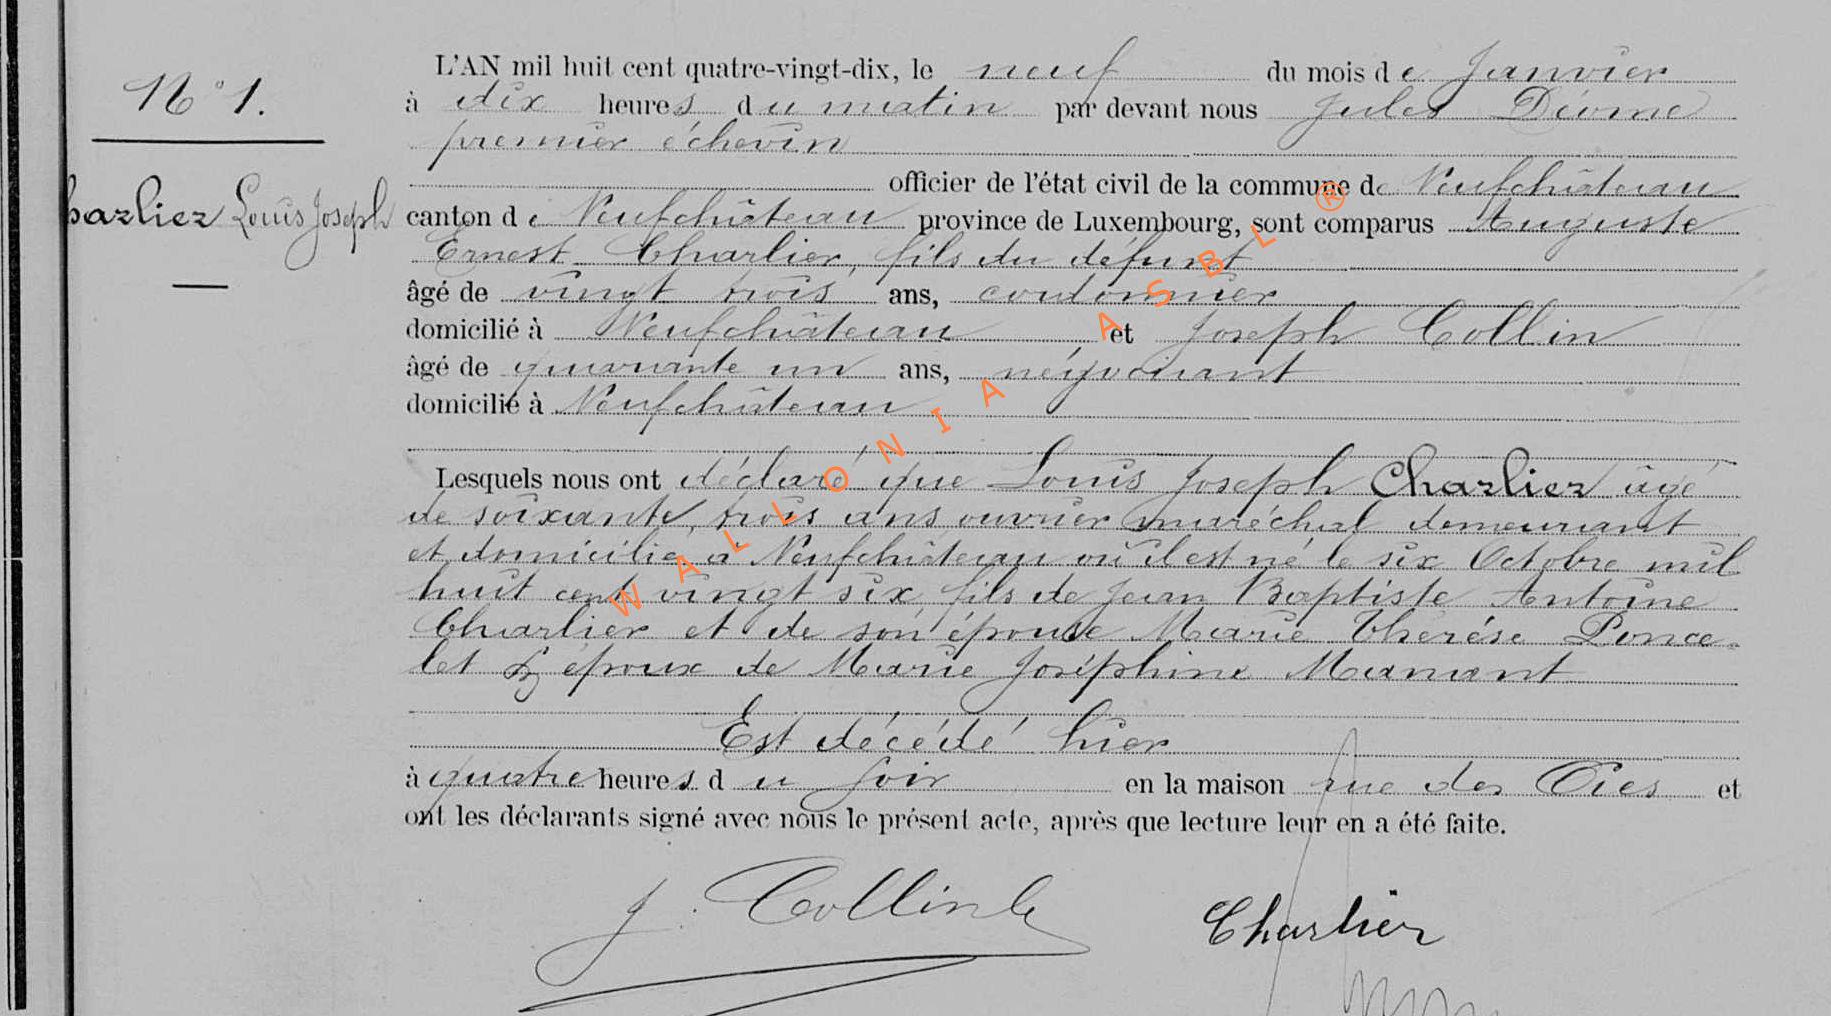 N° 1.
Charlier Louis Joseph
L'AN mil huit cent quatre-vingt-dix, le neuf du mois de Janvier
à dix heures du matin par devant nous Jules Diome
premier échevin
officier de l'état civil de la commune de Neufchâteau
canton de Neufchâteau province de Luxembourg, sont comparus Auguste
Ernest Charlier, fils du défunt
âgé de vingt trois ans, cordonnier
domicilié à Neufchâteau et Joseph Collin
âgé de quarante un ans, négociant
domicilié à Neufchâteau
Lesquels nous ont déclaré que Louis Joseph Charlier âgé
de soixante trois ans ouvrier maréchal demeurant
et domicilié à Neufchâteau où il est né le six Octobre mil
huit cent vingt six, fils de Jean Baptiste Antoine
Charlier et de son épouse Marie Thérése Ponce-
let époux de Marie Joséphine Mamant
Est décédé hier
à quatre heures du soir en la maison rue des Oies et
ont les déclarants signé avec nous le présent acte, après que lecture leur en a été faite.
J. Collin Charlier
WALLONIA ASBL ®